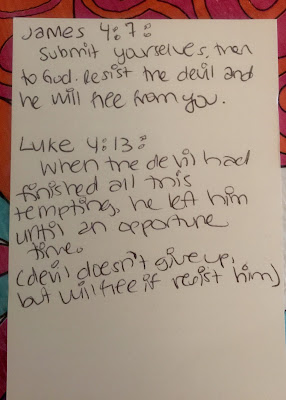 James 4:7:
Submit yourselves, then
to God. Resist the devil and
he will flee from you.
Luke 4:13:
When the devil had
finished all this
tempting, he left him
until an opportune
time.
(devil doesn't give up,
but will flee if resist him)